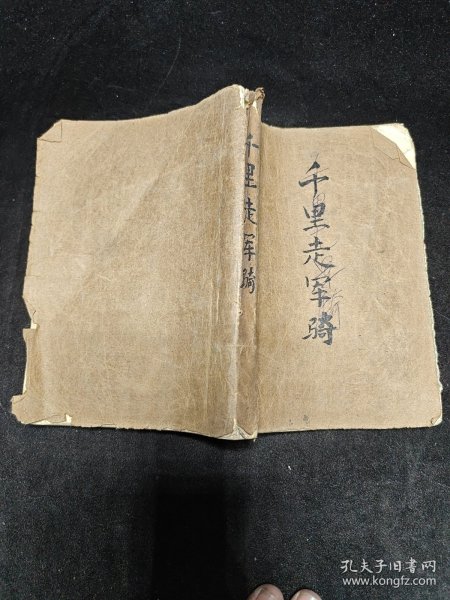 千里走军骑
千里走军骑
孔夫子旧书网
www.kongfz.com